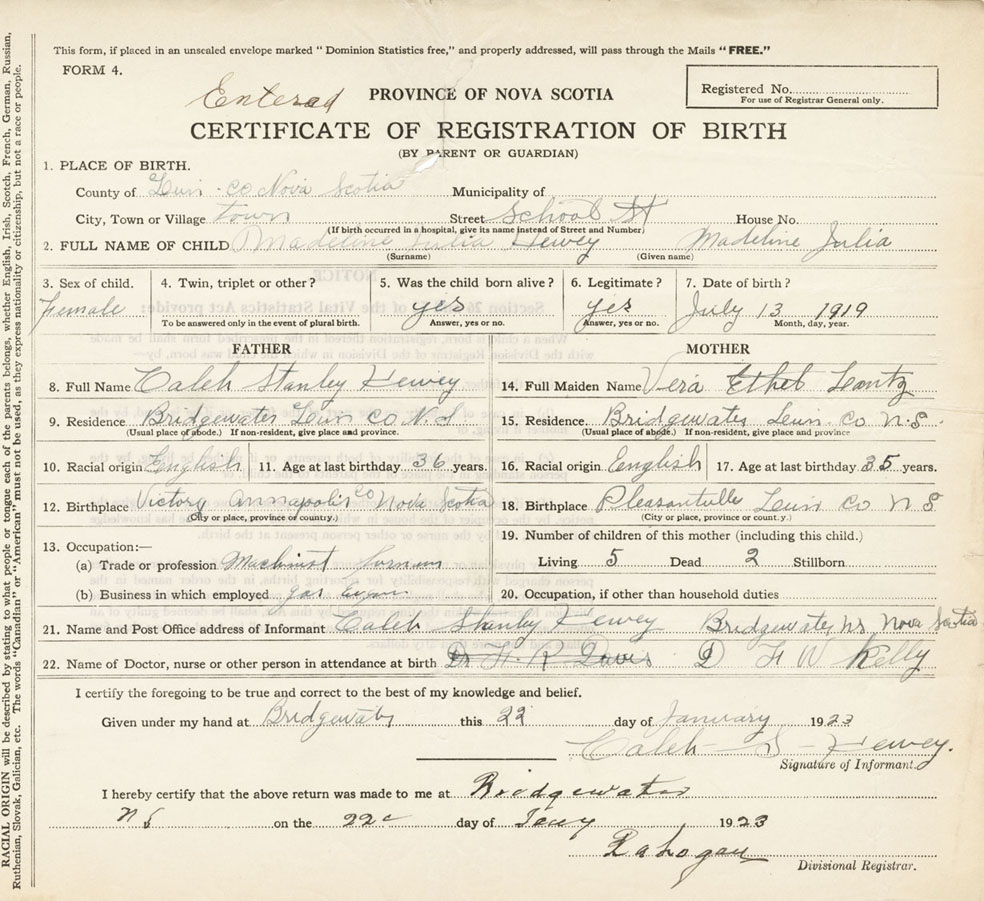 This form, if placed in an unsealed envelope marked "Dominion Statistics free," and properly addressed, will pass through the Mails "FREE."
FORM 4.
Entered PROVINCE OF NOVA SCOTIA
Registered No.
For use of Registrar General only.
CERTIFICATE OF REGISTRATION OF BIRTH
(BY PARENT OR GUARDIAN)
1. PLACE OF BIRTH.
County of Lun. co Nova Scotia Municipality of
City, Town or Village town Street School St House No.
(If birth occurred in a hospital, give its name instead of Street and Number)
2. FULL NAME OF CHILD Madeline Julia Hewey Madeline Julia
(Surname) (Given name)
3. Sex of child. 4. Twin, triplet or other? 5. Was the child born alive? 6. Legitimate? 7. Date of birth?
Female yes yes July 13 1919
To be answered only in the event of plural birth. Answer, yes or no. Answer, yes or no. Month, day, year.
FATHER MOTHER
8. Full Name Caleb Stanley Hewey 14. Full Maiden Name Vera Ethel Lantz
9. Residence Bridgewater Lun Co N.S. 15. Residence Bridgewater Lun. Co N.S.
(Usual place of abode.) If non-resident, give place and province. (Usual place of abode.) If non-resident, give place and province
10. Racial origin English 11. Age at last birthday 36 years. 16. Racial origin English 17. Age at last birthday 35 years.
12. Birthplace Victory Annapolis Co Nova Scotia 18. Birthplace Pleasantville Lun Co N S
(City or place, province or country.) (City or place, province or country.)
19. Number of children of this mother (including this child.)
13. Occupation:—
(a) Trade or profession Machinist Living 5 Dead 2 Stillborn
(b) Business in which employed gas 20. Occupation, if other than household duties
21. Name and Post Office address of Informant Caleb Stanley Hewey Bridgewater Nova Scotia
22. Name of Doctor, nurse or other person in attendance at birth Dr H. R Davis D F W Kelly
I certify the foregoing to be true and correct to the best of my knowledge and belief.
Given under my hand at Bridgewater this 22 day of January 1923
Caleb S Hewey.
Signature of Informant.
I hereby certify that the above return was made to me at Bridgewater
N S on the 22 day of Jany 1923
Divisional Registrar.
RACIAL ORIGIN will be described by stating to what people or tongue each of the parents belongs, whether English, Irish, Scotch, French, German, Russian,
Ruthenian, Slovak, Galician, etc. The words "Canadian" or "American" must not be used, as they express nationality or citizenship, but not a race or people.